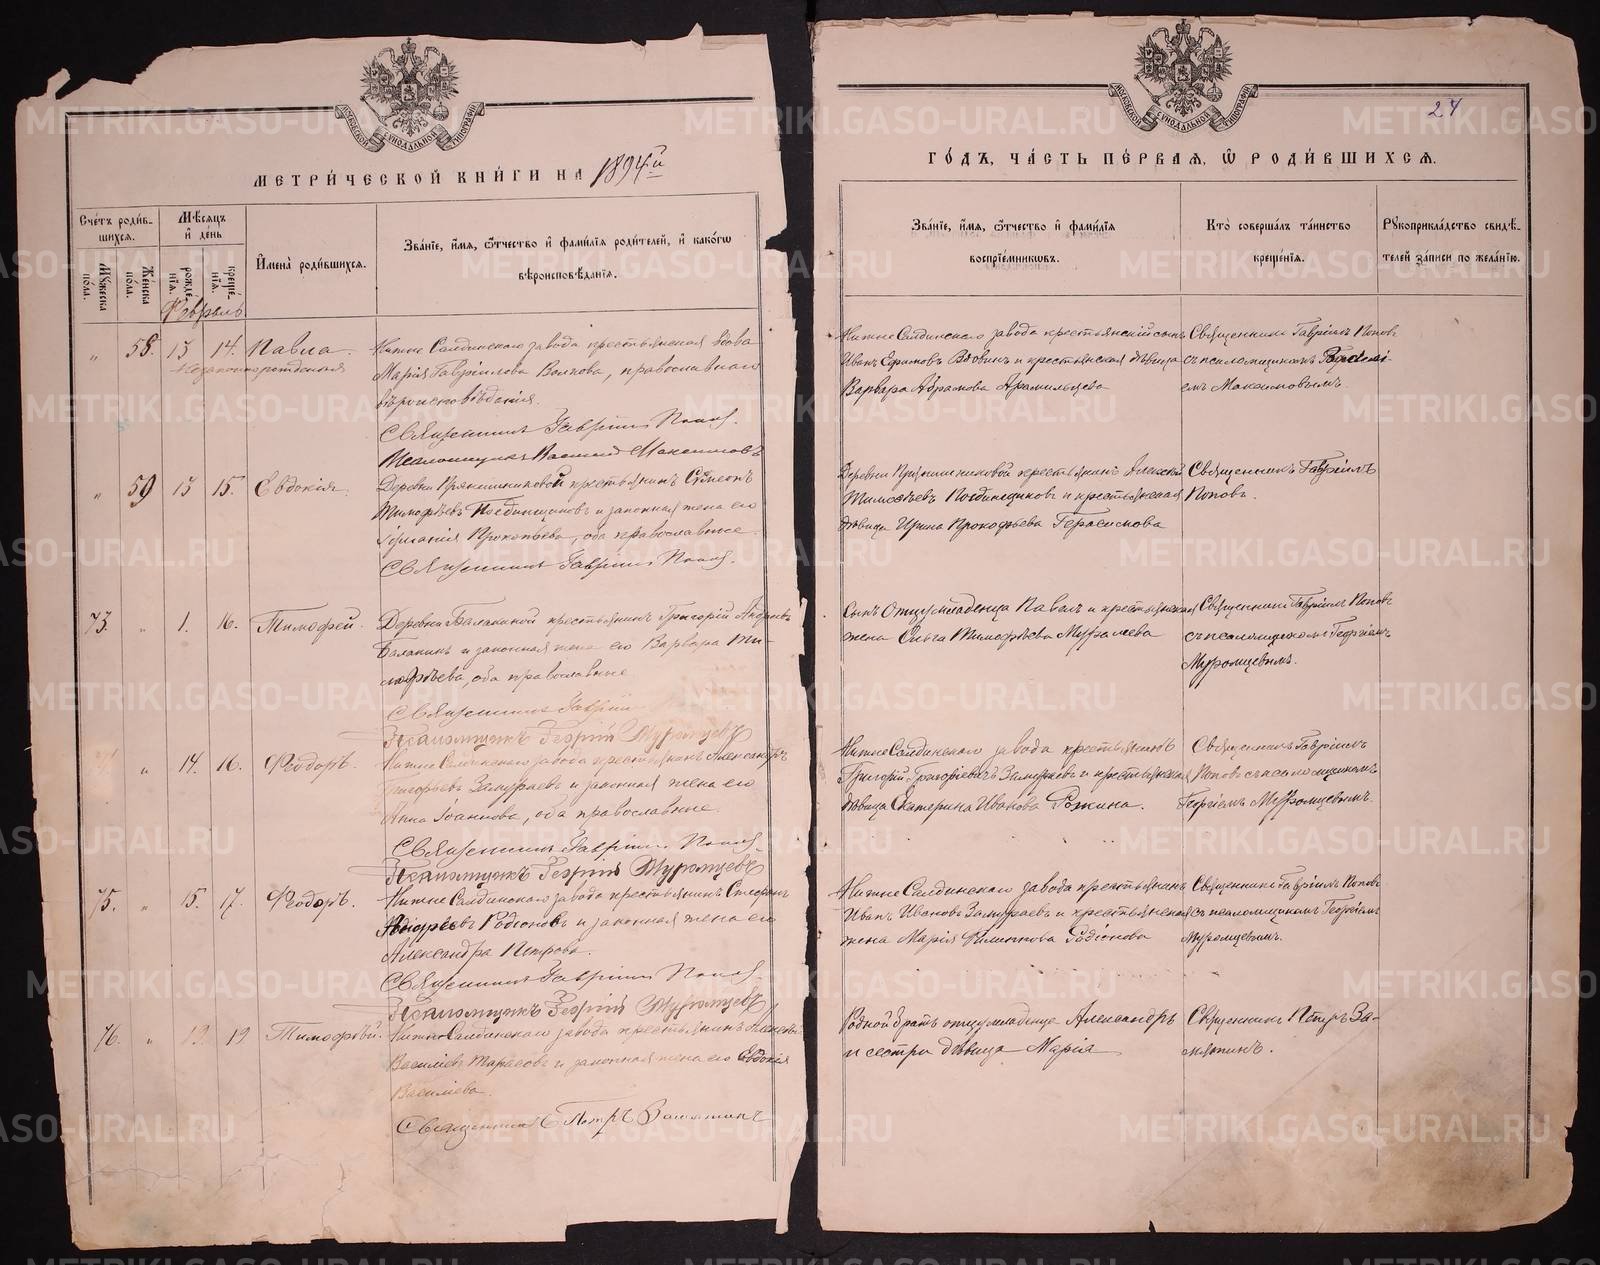 МОСКОВСКОЙ СѴНОДАЛЬНОЙ ТИПОГРАФІИ
МЕТРИ́ЧЕСКОЙ КНИ́ГИ НА 1894й
Сче́тъ роди́в-
шихся.
Мѣ́сяцъ
и҆ де́нь
И҆мена̀ роди́вшихся.
Зва́нїе, и҆́мя, ѻ҆́тчество и҆ фами́лїя роди́телей, и҆ како́гѡ
вѣроисповѣ́данїя.
Мꙋжеска
по́ла.
Же́нска
по́ла.
рожде-
нїя.
креще́-
нїя.
Февраль
„ 58. 13 14. Павла.
Незаконнорожденная
Нижне Салдинскаго завода крестьянская вдова
Марія Гавріилова Волкова, православнаго
вѣроисповѣданія.
Священникъ Гавріилъ Поповъ.
Псаломщикъ Василій Максимовъ
„ 59 13 15. Евдокія.
Деревни Прянишниковой крестьянинъ Сѵмеонъ
Тимофѣевъ Поединщиковъ и законная жена его
Прокопьева, оба православные.
Священникъ Гавріилъ Поповъ.
73. „ 1. 16. Тимофей.
Деревни Балакиной крестьянинъ Григорій Андреевъ
Балакинъ и законная жена его Варвара Ти-
мофѣева, оба православные
Священникъ Гавріилъ
Псаломщикъ Георгій Муромцевъ
„ 14. 16. Ѳеодоръ.
Нижне Салдинскаго завода крестьянинъ Александръ
Григорьевъ Замураевъ и законная жена его
Анна Іоаннова, оба православные.
Священникъ Гавріилъ Поповъ.
Псаломщикъ Георгій Муромцевъ
75. „ 15. 17. Ѳеодоръ.
Нижне Салдинскаго завода крестьянинъ Стефанъ
Андреевъ Родіоновъ и законная жена его
Александра Петрова.
Священникъ Гавріилъ Поповъ.
Псаломщикъ Георгій Муромцевъ
76. „ 19 19 Тимофѣй.
Нижне Салдинскаго завода крестьянинъ Алексѣй
Василіевъ Тарасовъ и законная жена его Евдокія
Василіева.
Священникъ Петръ Замятинъ
24
ГО́ДЪ, ЧА́СТЬ ПЕ́РВАЯ, Ѡ҆ РОДИ́ВШИХСЯ.
Зва́нїе, и҆́мя, ѻ҆́тчество и҆ фами́лїя
воспрїе́мниковъ.
Кто̀ соверша́лъ та́инство
креще́нїя.
Рꙋкоприкла́дство свидѣ́-
телей за́писи по жела́нїю.
Нижне Салдинскаго завода крестьянскій сынъ
Иванъ Ефимовъ Вдовинъ и крестьянская дѣвица
Варвара Абрамова Арамильцева
Священникъ Гавріилъ Поповъ
съ псаломщикомъ Василі-
емъ Максимовымъ.
Деревни Прянишниковой крестьянинъ Алексѣй
Тимофѣевъ Поединщиковъ и крестьянская
дѣвица Ирина Прокофьева Герасимова
Священникъ Гавріилъ
Поповъ.
Сынъ Отца младенца Павелъ и крестьянская
жена Ольга Тимофѣева
Священникъ Гавріилъ Поповъ
съ псаломщикомъ Георгіемъ
Муромцевымъ.
Нижне Салдинскаго завода крестьянинъ
Григорій Григоріевичъ Замураевъ и крестьянская
дѣвица Екатерина Иванова Рожкина.
Священникъ Гавріилъ
Поповъ съ псаломщикомъ
Георгіемъ Муромцевымъ.
Нижне Салдинскаго завода крестьянинъ
Иванъ Ивановъ Замураевъ и крестьянская
жена Марія Филиппова Родіонова
Священникъ Гавріилъ Поповъ
съ псаломщикомъ Георгіемъ
Муромцевымъ.
Родной братъ отца младенца Александръ
и сестра дѣвица Марія
Священникъ Петръ За-
мятинъ.
METRIKI.GASO-URAL.RU